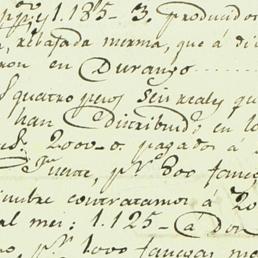 1.185-3. producidos
, rebajada merma, que á di
ron en Durango
quatro pesos seis reales qu
han Distribuido en lo
2000-o pagados á
Fuente, pr. 800 faneg
contratamos á 20
al mei: 1.125- a Don
pr. 1000 fanegas